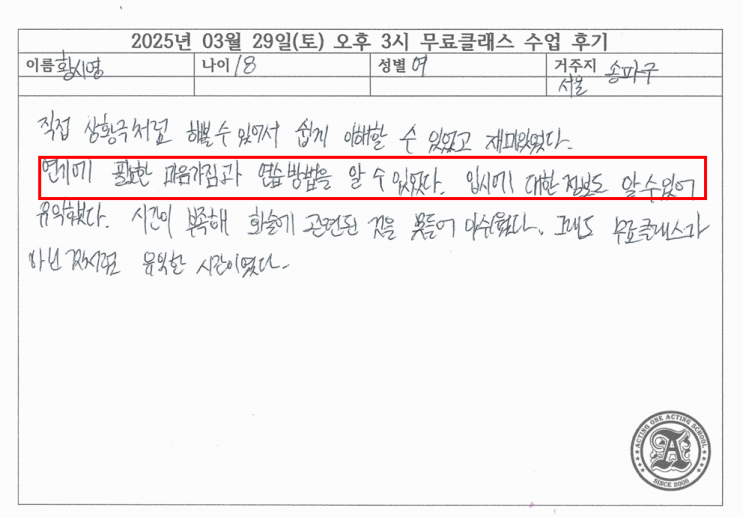 2025년 03월 29일(토) 오후 3시 무료클래스 수업 후기
이름 황시영 나이 18 성별 여 거주지 서울 송파구
직접 상황극처럼 해볼 수 있어서 쉽게 이해할 수 있었고 재미있었다.
연기에 필요한 마음가짐과 연습방법을 알 수 있었다. 입시에 대한 정보도 알 수 있어
유익했다. 시간이 부족해 화술에 관련된 것을 못들어 아쉬웠다. 그래도 무료클래스가
아닌 것처럼 유익한 시간이었다.
ACTING ONE ACTING SCHOOL
A
SINCE 2006